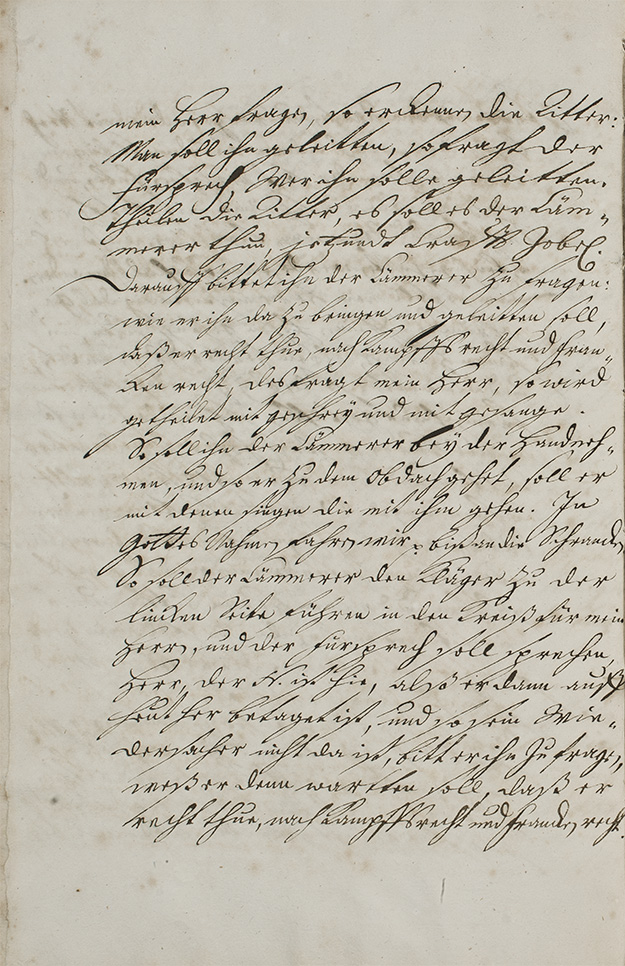 mein Herr fragen, so erckennen die Ritter:
Man soll ihn geleitten, so fragt der
Fürsprech, Wer ihn solle geleitten.
Theilen die Ritter, es soll es der Cäm„
merer thun, jetzundt Crafft Zobel.
Darauff bittet ihn der Cämmerer zu fragen:
wie er ihn da zu bringen und geleitten soll,
daß er recht thue, nach Kampffsrecht und Fran„
cken recht, des fragt mein Herr, so wird
getheilet mit geschrey und mit gesange.
So soll ihn der Cämmerer bey der Handneh„
men, und so er zu dem Obdach gehet, soll er
mit denen singen die mit ihm gehen. In
Gottes Nahmen fahren wir, biß an die Schrancken
So soll der Cämmerer den Kläger zu der
lincken Seite führen in den Kreiß für mein
Herrn, und der Fürsprech soll sprechen,
Herr, der N. ist hie, also er dann auff
heut her betaget ist, und so sein Wie„
dersacher nicht da ist, bitt er ihn zu fragen,
weß er denn wartten soll, daß er
recht thue, nach Kampffsrecht und Francken recht.